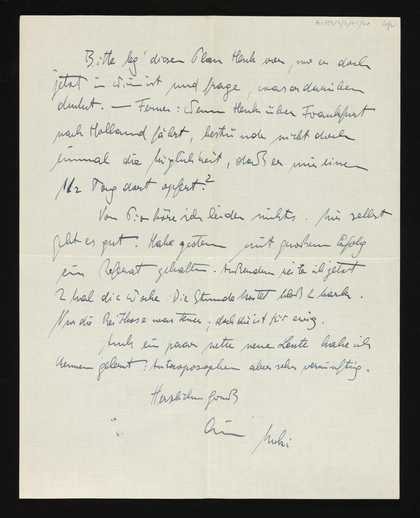 Bitte leg' diesen Plan Henk vor, wo er doch
jetzt in Wien ist und frage, was er darüber
denkt. — Ferner: Wenn Henk über Frankfurt
nach Holland fährt, bestünde nicht doch
einmal die Möglichkeit, daß er mir einen
1/2 Tag dort opfert?
Von Dir höre ich leider nichts. Mir selbst
geht es gut. Habe gestern mit großem Erfolg
ein Referat gehalten. Außerdem reite ich jetzt
2 mal die Woche. Die Stunde kostet bloß 2 Mark.
Nur die Reithose war teuer, doch die ist für ewig.
Auch ein paar nette neue Leute habe ich
kennen gelernt: Antroposophen aber sehr vernünftig.
Herzlichen Gruß